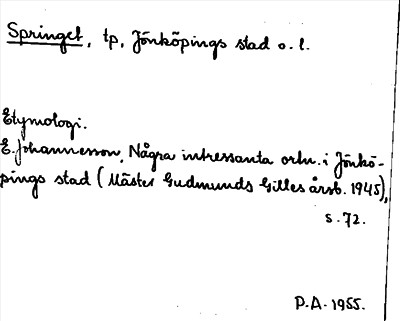 Springet, tp, Jönköpings stad o. l.
Etymologi.
E. Johannesson, Några intressanta ortn. i Jönkö-
pings stad (Mäster Gudmunds Gilles årsb. 1945),
s. 72.
P.A. 1955.